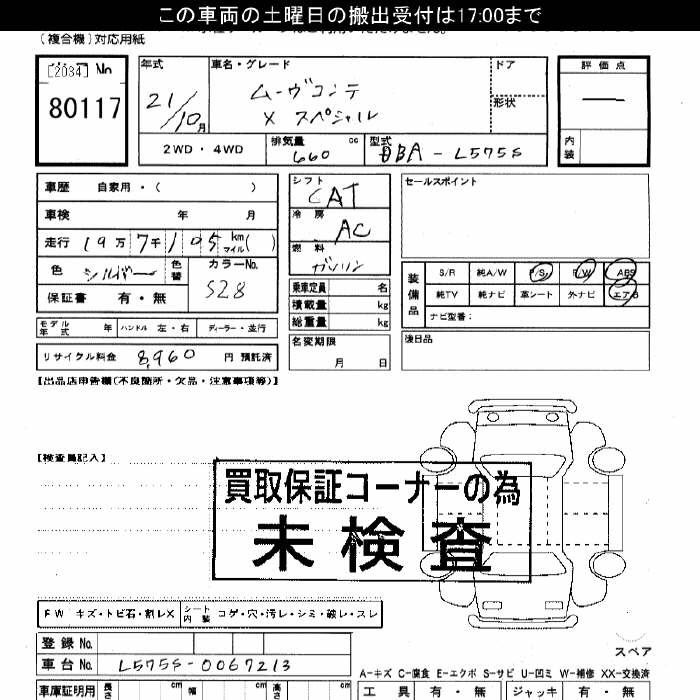 この車両の土曜日の搬出受付は17:00まで
(複合機)対応用紙
[2034] No
80117
年式
21/10月
車名・グレード
ムーヴコンテ
X スペシャル
ドア
形状
評価点
—
内装
2WD・4WD
排気量 660 cc
型式 DBA-L575S
車歴 自家用・( )
車検 年 月
走行 19万7千105 km マイル( )
色 シルバー 色替
カラーNo. S28
保証書 有・無
シフト CAT
冷房 AC
燃料 ガソリン
乗車定員 名
積載量 kg
総重量 kg
名変期限
月 日
セールスポイント
装備品
S/R 純A/W P/S P/W ABS
純TV 純ナビ 革シート 外ナビ エアB
ナビ型番:
後日品
モデル年式 年 ハンドル 左・右 ディーラー・並行
リサイクル料金 8,960 円 預託済
【出品店申告欄(不良箇所・欠品・注意事項等)】
【検査員記入】
買取保証コーナーの為
未検査
FW キズ・トビ石・割レX シート内装 コゲ・穴・汚レ・シミ・破レ・スレ
登録No.
車台No. L575S-0067213
スペア
A-キズ C-腐食 E-エクボ S-サビ U-凹ミ W-補修 XX-交換済
車庫証明用 長さ cm 幅 cm 高さ cm
工具 有・無 ジャッキ 有・無